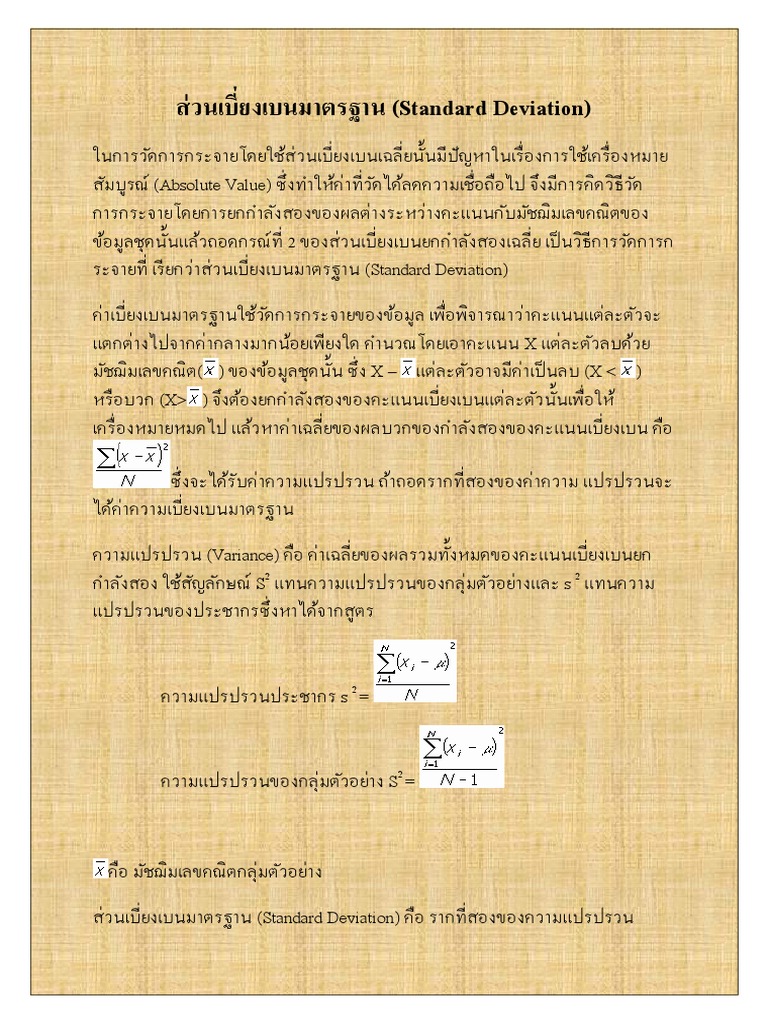 ส่วนเบี่ยงเบนมาตรฐาน (Standard Deviation)
ในการวัดการกระจายโดยใช้ส่วนเบี่ยงเบนเฉลี่ยนั้นมีปัญหาในเรื่องการใช้เครื่องหมาย
สัมบูรณ์ (Absolute Value) ซึ่งทำให้ค่าที่วัดได้ลดความเชื่อถือไป จึงมีการคิดวิธีวัด
การกระจายโดยการยกกำลังสองของผลต่างระหว่างคะแนนกับมัชฌิมเลขคณิตของ
ข้อมูลชุดนั้นแล้วถอดกรณ์ที่ 2 ของส่วนเบี่ยงเบนยกกำลังสองเฉลี่ย เป็นวิธีการวัดการก
ระจายที่ เรียกว่าส่วนเบี่ยงเบนมาตรฐาน (Standard Deviation)
ค่าเบี่ยงเบนมาตรฐานใช้วัดการกระจายของข้อมูล เพื่อพิจารณาว่าคะแนนแต่ละตัวจะ
แตกต่างไปจากค่ากลางมากน้อยเพียงใด คำนวณโดยเอาคะแนน X แต่ละตัวลบด้วย
มัชฌิมเลขคณิต( x̄ ) ของข้อมูลชุดนั้น ซึ่ง X – x̄ แต่ละตัวอาจมีค่าเป็นลบ (X < x̄ )
หรือบวก (X> x̄ ) จึงต้องยกกำลังสองของคะแนนเบี่ยงเบนแต่ละตัวนั้นเพื่อให้
เครื่องหมายหมดไป แล้วหาค่าเฉลี่ยของผลบวกของกำลังสองของคะแนนเบี่ยงเบน คือ
∑(x − x̄)² / N ซึ่งจะได้รับค่าความแปรปรวน ถ้าถอดรากที่สองของค่าความ แปรปรวนจะ
ได้ค่าความเบี่ยงเบนมาตรฐาน
ความแปรปรวน (Variance) คือ ค่าเฉลี่ยของผลรวมทั้งหมดของคะแนนเบี่ยงเบนยก
กำลังสอง ใช้สัญลักษณ์ S² แทนความแปรปรวนของกลุ่มตัวอย่างและ s ² แทนความ
แปรปรวนของประชากรซึ่งหาได้จากสูตร
ความแปรปรวนประชากร s ² = ∑_{i=1}^{N} (x_i − μ)² / N
ความแปรปรวนของกลุ่มตัวอย่าง S² = ∑_{i=1}^{N} (x_i − μ)² / N − 1
x̄ คือ มัชฌิมเลขคณิตกลุ่มตัวอย่าง
ส่วนเบี่ยงเบนมาตรฐาน (Standard Deviation) คือ รากที่สองของความแปรปรวน